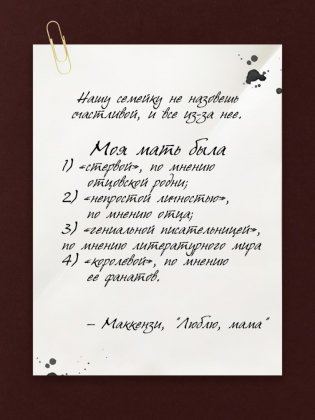 Нашу семейку не назовешь
счастливой, и все из-за нее.
Моя мать была
1) «стервой», по мнению
отцовской родни;
2) «непростой личностью»,
по мнению отца;
3) «гениальной писательницей»,
по мнению литературного мира
4) «королевой», по мнению
ее фанатов.
– Маккензи, "Люблю, мама"